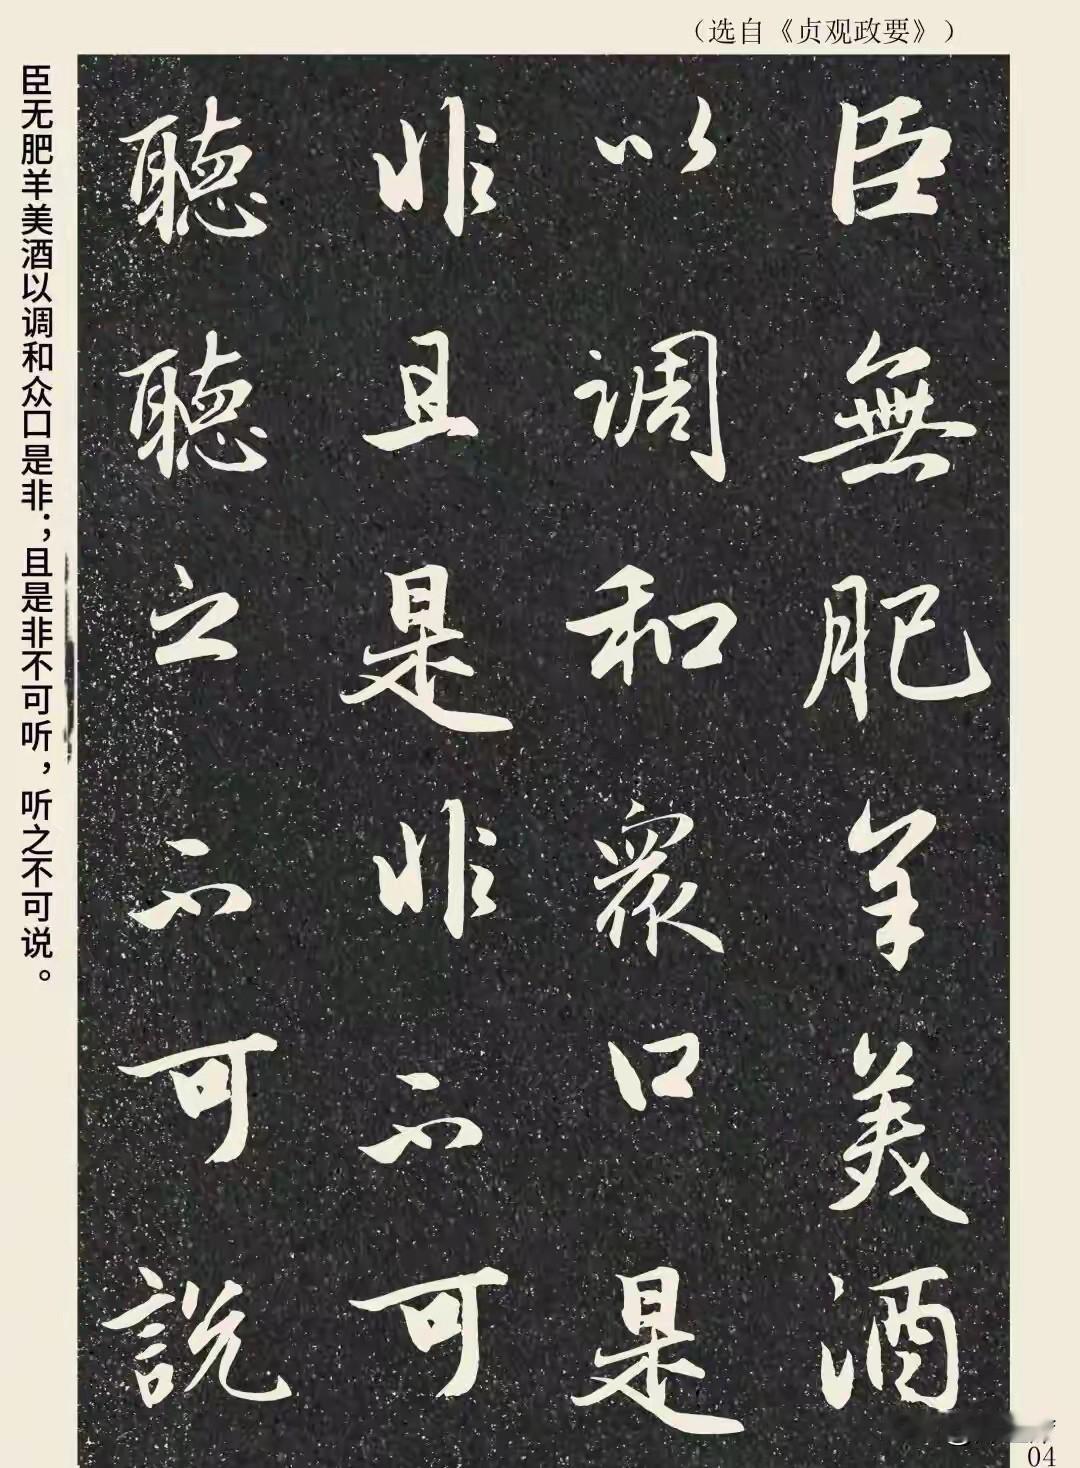 （选自《贞观政要》）
臣無肥羊美酒
以調和眾口是
非且是非不可
聽聽之不可說
臣无肥羊美酒以调和众口是非；且是非不可听，听之不可说。
04